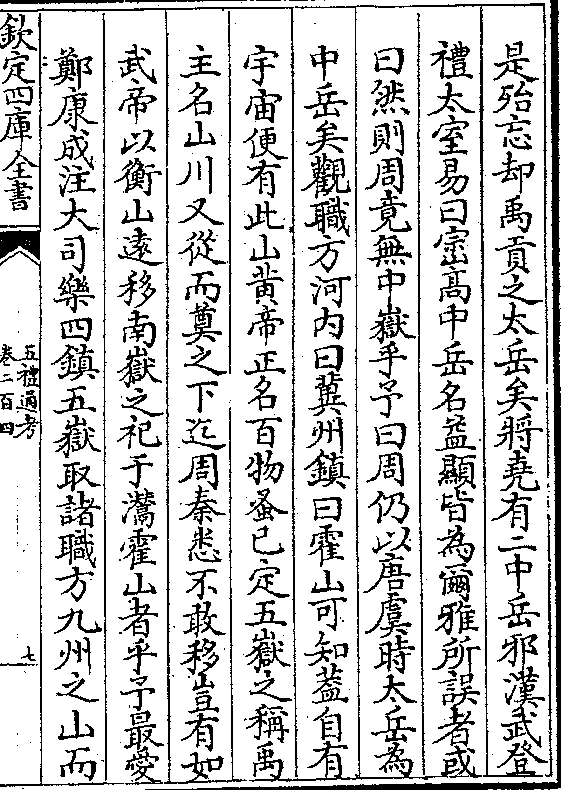 是殆忘却禹貢之太岳矣將堯有二中岳邪漢武登
禮太室易曰崈高中岳名益顯皆為爾雅所誤者或
曰然則周竟無中嶽乎予曰周仍以唐虞時太岳為
中岳矣觀職方河内曰冀州鎮曰霍山可知蓋自有
宇宙便有此山黄帝正名百物蚤已定五嶽之稱禹
主名山川又從而奠之下迄周秦悉不敢移豈有如
武帝以衡山遠移南嶽之祀于灊霍山者乎予最愛
鄭康成注大司樂四鎮五嶽取諸職方九州之山而
欽定四庫全書
五禮通考
卷二百四
七